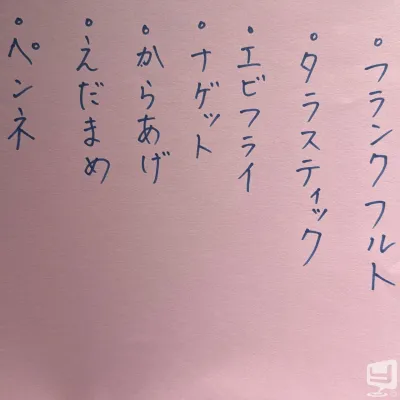 ・フランクフルト
・タラスティック
・エビフライ
・ナゲット
・からあげ
・えだまめ
・ペンネ